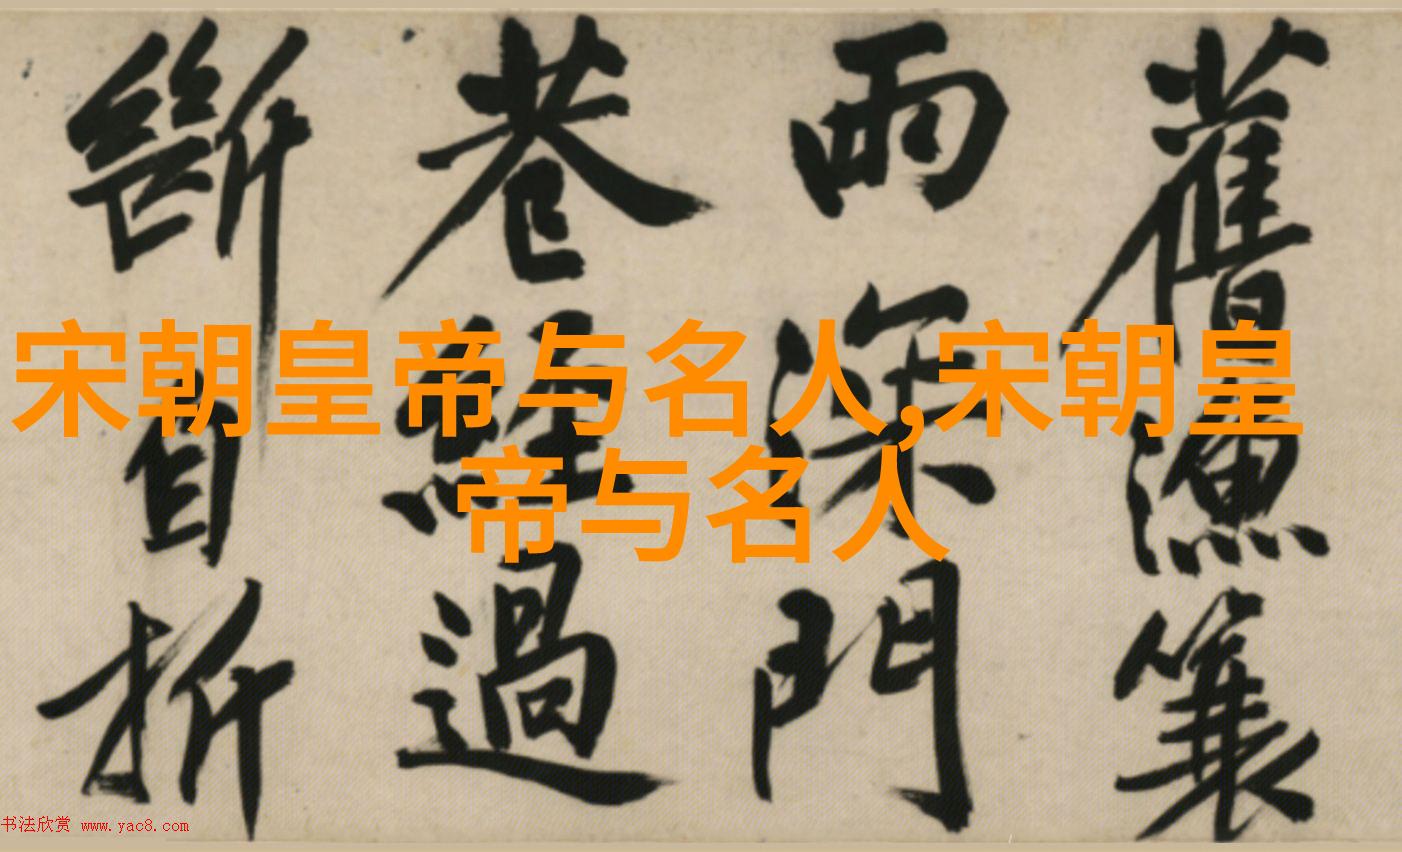 舊漁簑
雨深門
巷經過
斷自折
宋朝皇帝与名人,宋朝皇
帝与名人
书法欣赏 www.yac8.com